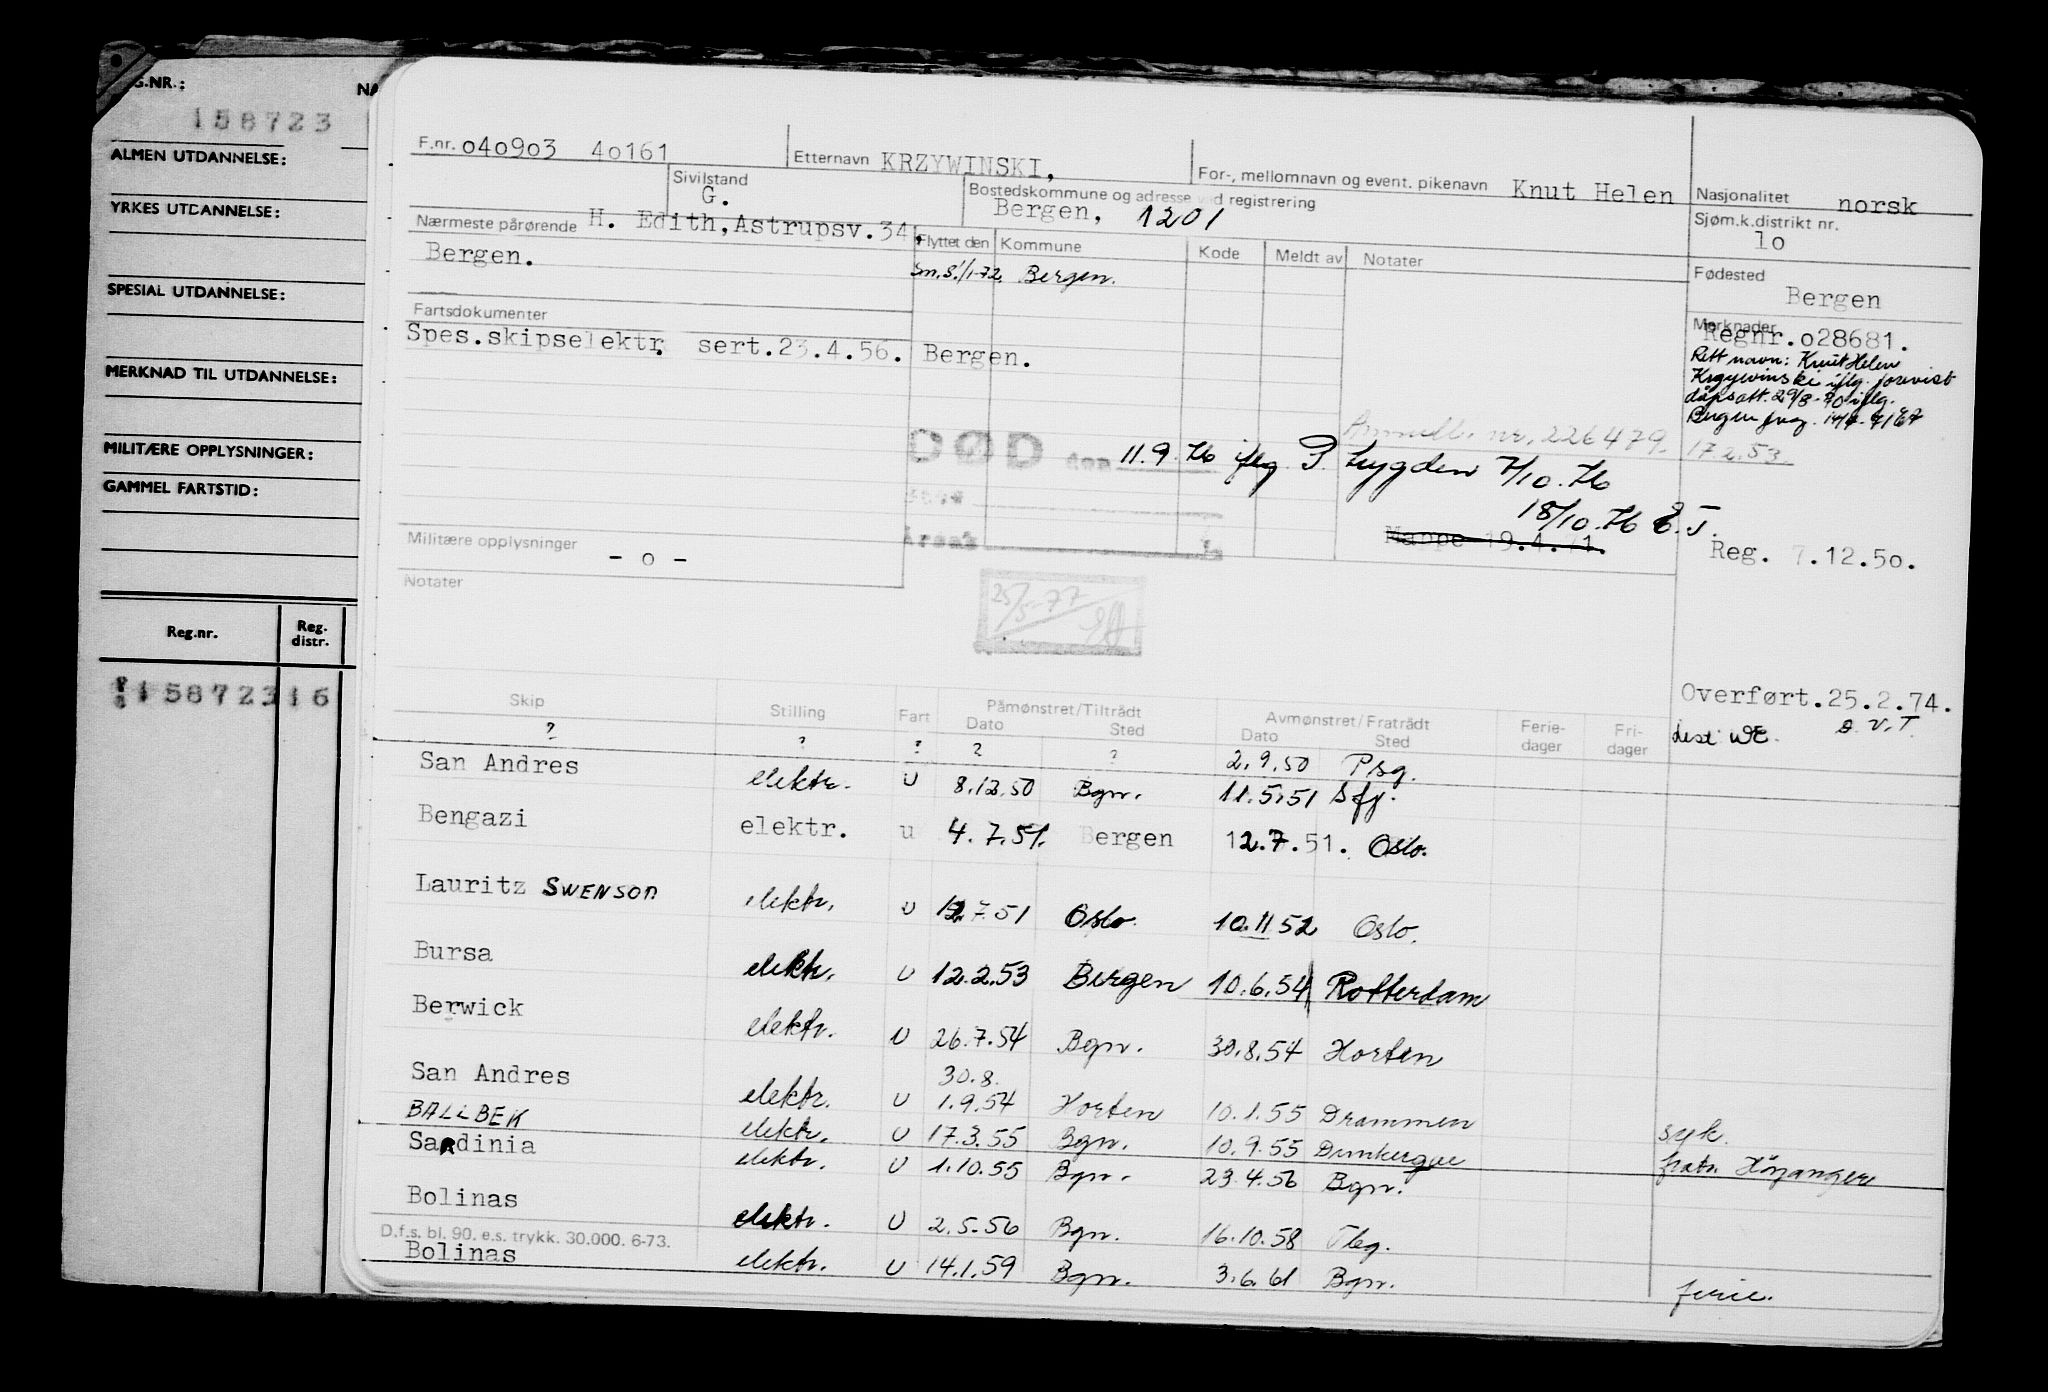 G.NR.: NA
158723
ALMEN UTDANNELSE:
YRKES UTDANNELSE:
SPESIAL UTDANNELSE:
MERKNAD TIL UTDANNELSE:
MILITÆRE OPPLYSNINGER:
GAMMEL FARTSTID:
Reg.nr. Reg. distr.
158723 16
F.nr. o4o9o3 4o161 Etternavn KRZYWINSKI, For-, mellomnavn og event. pikenavn Knut Helen Nasjonalitet norsk
Sivilstand G. Bostedskommune og adresse ved registrering Bergen, 1201 Sjøm.k.distrikt nr. lo
Nærmeste pårørende H. Edith,Astrupsv.34,
Bergen.
Flyttet den Kommune Kode Meldt av Notater
Sm.s. 1/1-72 Bergen.
Fødested
Bergen
Fartsdokumenter
Spes.skipselektr. sert.23.4.56. Bergen.
Merknader
Regnr.o28681.
Rett navn: Knut Helen
Krzywinski iflg. forevist
dåpsatt. 29/8-
Annull. nr. 226479. 17.2.53.
DØD den 11.9.76 iflg. P. Lygden 7/10.76
18/10.76 E.T.
Mappe 19.4.71.
Reg. 7.12.5o.
Militære opplysninger - o -
Notater
25/5-77
Overført.25.2.74.
Skip Stilling Fart Påmønstret/Tiltrådt Dato Sted Avmønstret/Fratrådt Dato Sted Ferie-dager Fri-dager
? ? ? ? ? 2.9.50 Psg.
San Andres elektr. U 8.12.50 Bgn. 11.5.51 Sfj.
Bengazi elektr. u 4.7.51. Bergen 12.7.51. Oslo.
Lauritz SWENSON elektr. U 12.7.51 Oslo. 10.11.52 Oslo.
Bursa elektr. U 12.2.53 Bergen 10.6.54 Rotterdam
Berwick elektr. U 26.7.54 Bgn. 30.8.54 Horten
30.8.
San Andres elektr. U 1.9.54 Horten 10.1.55 Drammen syk.
BALLBEK elektr. U 17.3.55 Bgn. 10.9.55 Dunkerque fratr. Høyanger
Sardinia elektr. U 1.10.55 Bgn. 23.4.56 Bgn.
Bolinas elektr. U 2.5.56 Bgn. 16.10.58 Tbg.
D.f.s. bl. 90. e.s. trykk. 30.000. 6-73.
Bolinas elektr. U 14.1.59 Bgn. 3.6.61 Bgn. ferie.